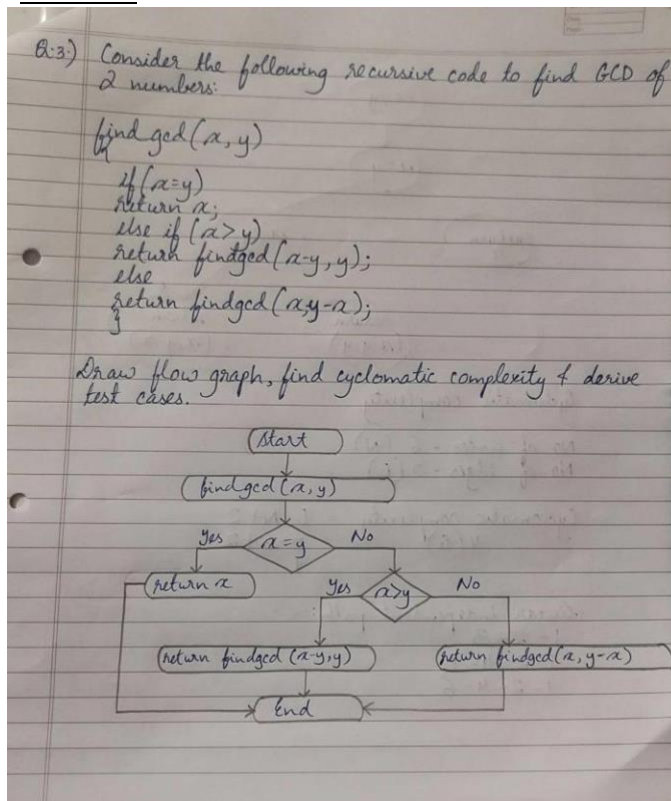 Q.3.) Consider the following recursive code to find GCD of
2 numbers:
find gcd (x, y)
{
if (x=y)
return x;
else if (x>y)
return findgcd (x-y, y);
else
return findgcd (x,y-x);
}
Draw flow graph, find cyclomatic complexity & derive
test cases.
Start
findgcd (x, y)
Yes x=y No
return x
Yes x>y No
return findgcd (x-y,y)
return findgcd (x, y-x)
End